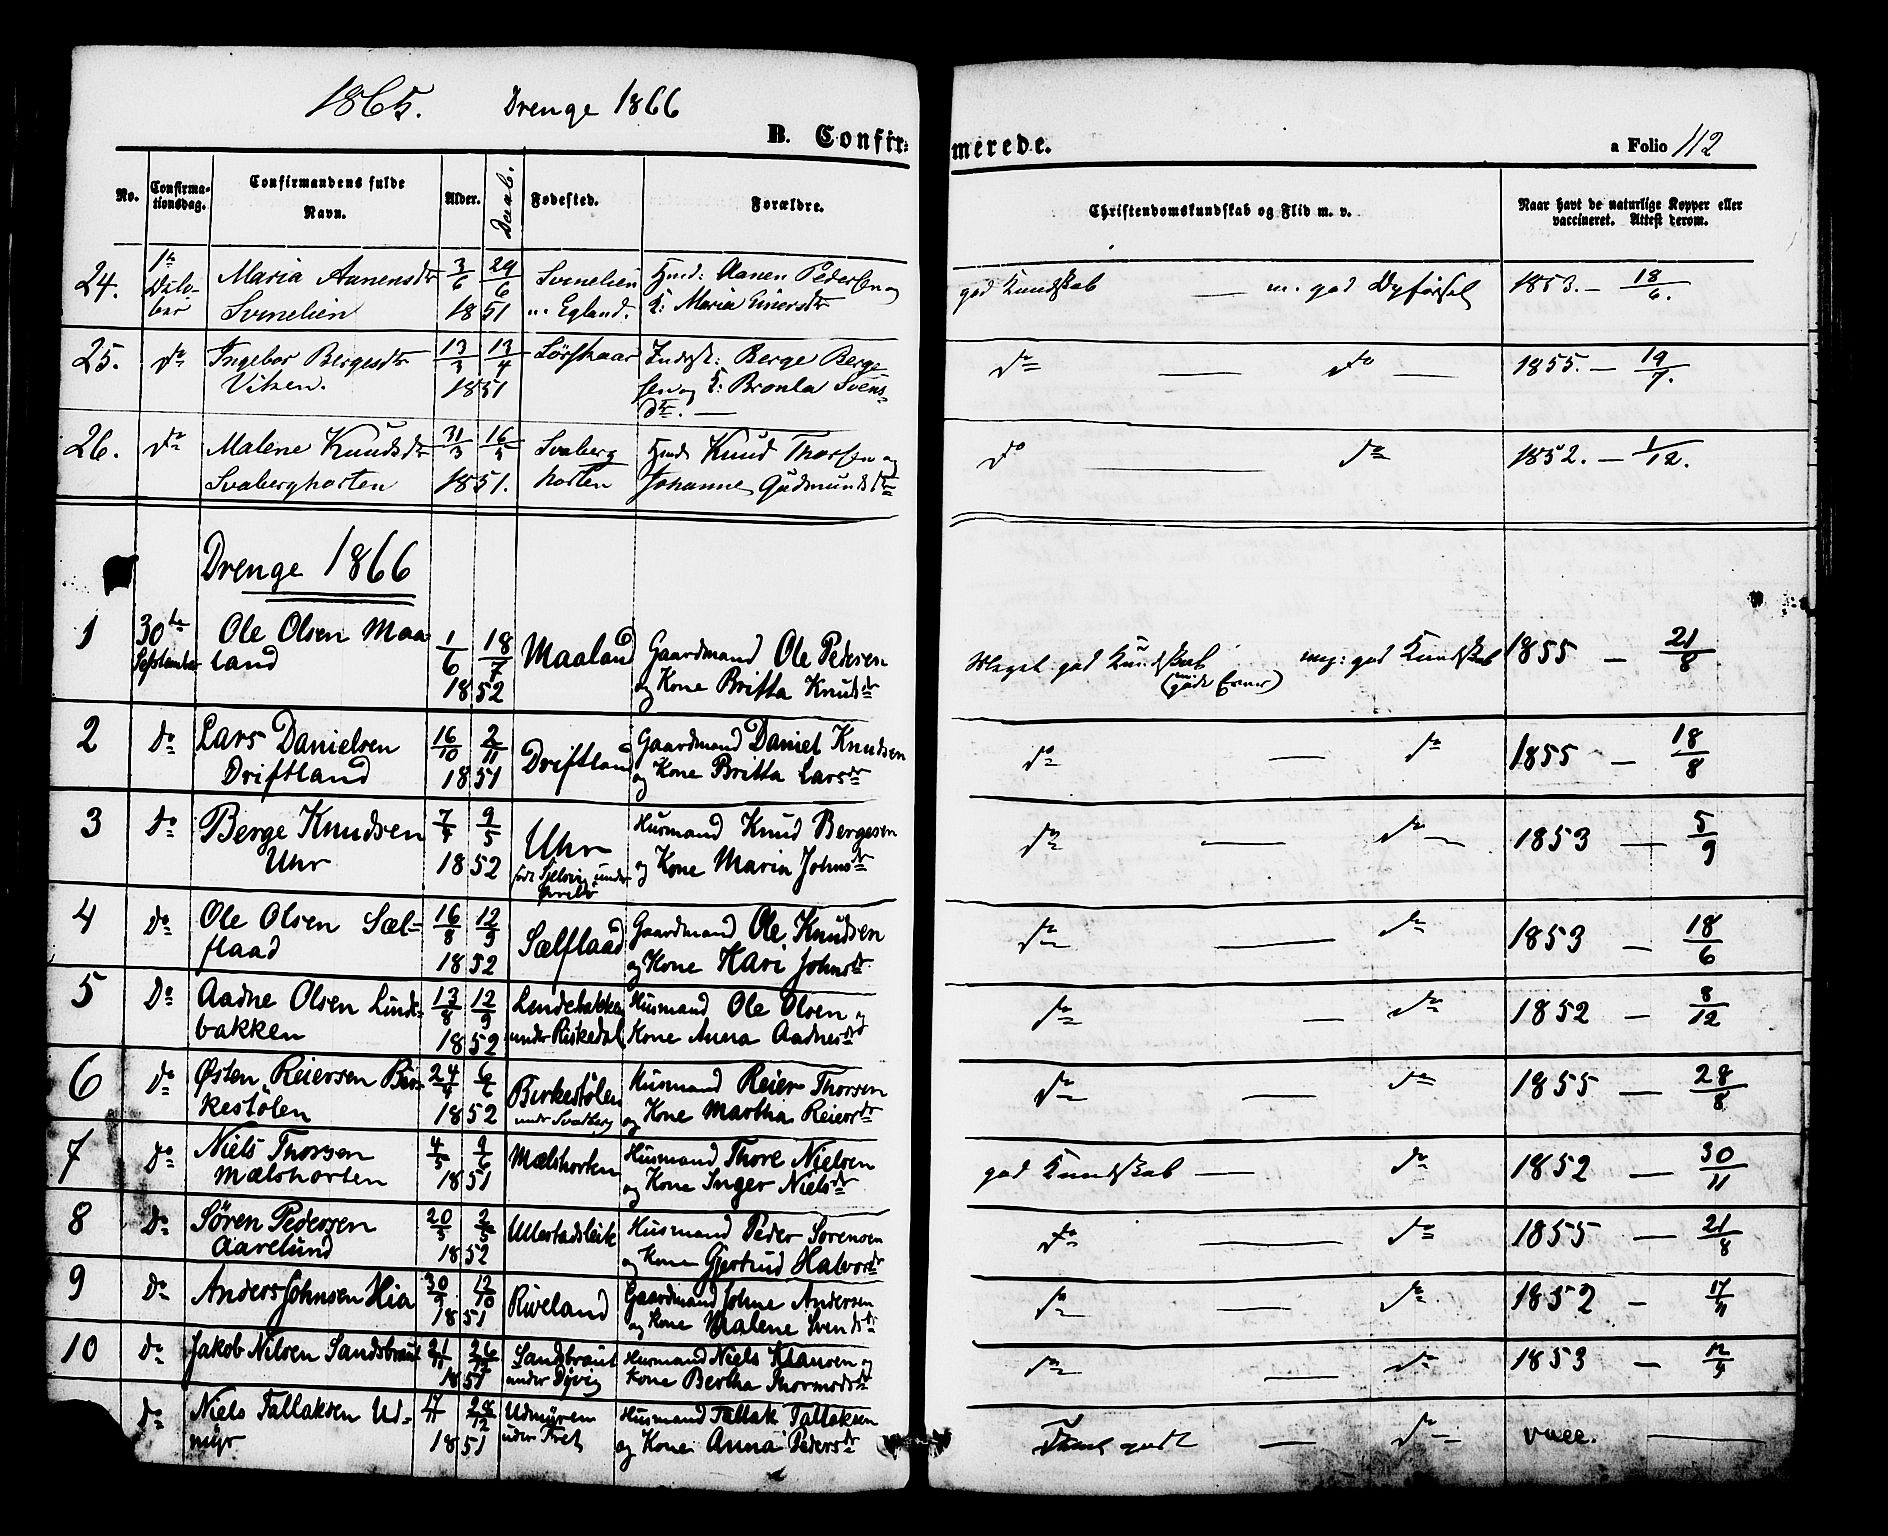 1865. Drenge 1866
B. Confir= merede. a Folio 112
No. Confirma-tionsdag. Confirmandens fulde Navn. Alder. Daab. Fødested. Forældre. Christendomskundskab og Flid m. v. Naar havt de naturlige Kopper eller vaccineret. Attest derom.
24. Maria Aanensdtr 3/6 29/6 Svenelien Hmd: Aanen Pedersen og god Kundskab — m. god Opførsel 1853. — 18/6.
Svenelien 1851 u. Egland. K: Maria
25. do Ingebor Bergesdtr 13/3 13/4 Lørskaar Inderst: Berge Berge- do — do — 1855. — 19/7.
Viken. 1851 sen og K: Bronla Svens-
dtr. —
26. do Malene Knudsdtr 31/3 16/5 Svaberg Hmd: Knud Thorsen og do — do 1852. — 1/12.
Svaberghorten 1851. horten Johanne Gudmundsdtr
Drenge 1866
1 30te Ole Olsen Maa 1/6 18/7 Maaland Gaardmand Ole Pedersen Meget god Kundskab meg: god Kundskab 1855 — 21/8
September land 1852 og Kone Britta Knudsdtr (gode Evner)
2 do Lars Danielsen 16/10 2/11 Driftland Gaardmand Daniel Knudsen do — do 1855 — 18/8
Driftland 1851 og Kone Britta Larsdtr
3 do Berge Knudsen 7/4 9/5 Uhr Husmand Knud Bergesen do — do 1853 — 5/9
Uhr 1852 og Kone Maria Johnsdtr
under
4 do Ole Olsen Sæl- 16/8 12/9 Sælflaad Gaardmand Ole Knudsen do — do 1853 — 18/6
flaad 1852 og Kone Kari Johnsdtr
5 do Aadne Olsen Linde- 13/8 12/9 Lendebakken Husmand Ole Olsen og do — do 1852 — 8/12
bakken 1852 under Riskedal Kone Anna Aadnesdtr
6 do Østen Reiersen Bir- 24/4 6/6 Birkestølen Husmand Reier Thorsen do — do 1855 — 28/8
kestølen 1852 under Svaberg og Kone Martha Reiersdtr
7 do Niels Thorsen 4/5 9/6 Mælshorten Husmand Thore Nielsen god Kundskab — do 1852 — 30/11
Mælshorten 1851 og Kone Inger Nielsdtr
8 do Søren Pedersen 20/3 2/5 Ullestadsleite Husmand Peder Sørensen do — do 1855 — 21/8
Aarelund 1852 og Kone Gjertrud Halvorsdtr
9 do Anders Johnsen Hia 30/9 12/10 Riveland Gaardmand Johne Andersen do — do 1852 — 17/11
1851 og Kone Malene Svendsdtr
10 do Jakob Nilsen Sandsbraut 21/11 26/12 Sandsbraut Husmand Niels Klausen og do do 1853 — 12/9
1851 under Dyvig Kone Bertha Thormodsdtr
do Niels Tallaksen Ud- 4/11 28/12 Udmyren Husmand Tallak Tallaksen godt — do — vacc. —
myr 1851 under Tret og Kone Anna Pedersdtr